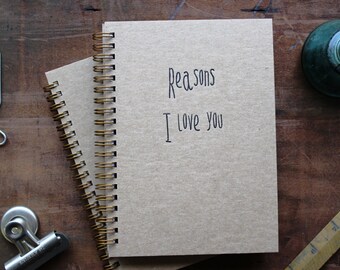 Reasons
I love you